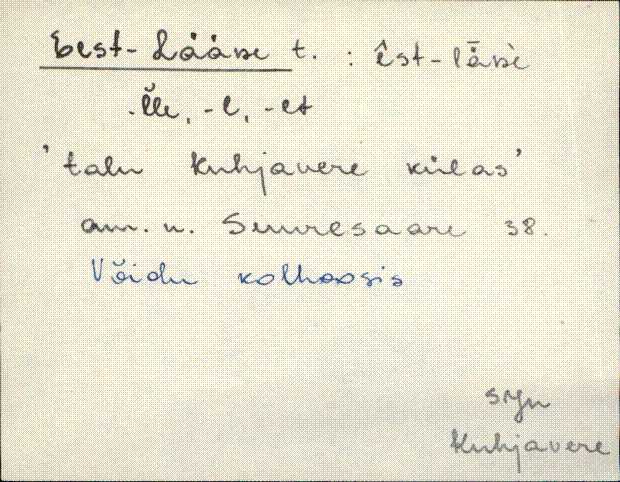 Eest-Lääne t. : êst-lǟnè
-l̆le, -l, -et
'talu Kuhjavere külas'
am. n. Suuresaare 38.
Võidu kolhoosis
SJn
Kuhjavere